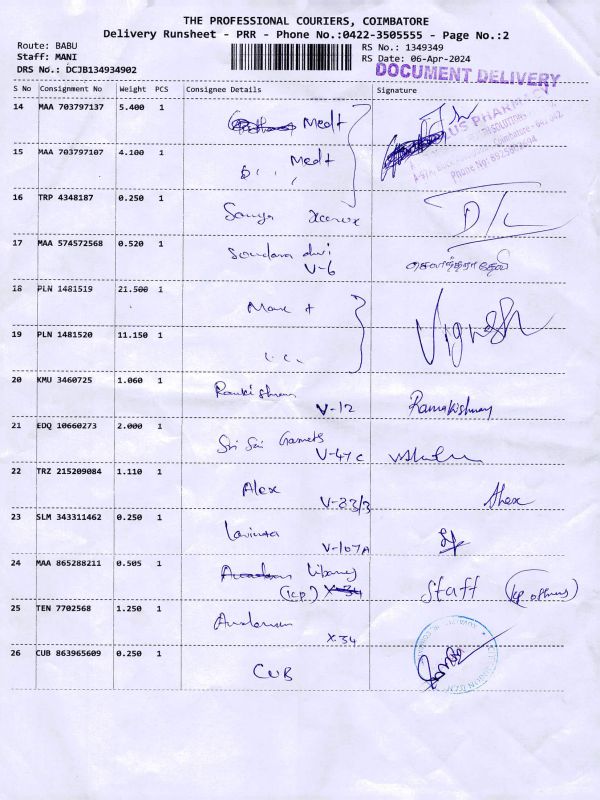 THE PROFESSIONAL COURIERS, COIMBATORE
Delivery Runsheet - PRR - Phone No.:0422-3505555 - Page No.:2
Route: BABU
Staff: MANI
DRS No.: DCJB134934902
RS No.: 1349349
RS Date: 06-Apr-2024
DOCUMENT DELIVERY
S No Consignment No Weight PCS Consignee Details Signature
14 MAA 703797137 5.400 1
Med+
15 MAA 703797107 4.100 1
Med+
16 TRP 4348187 0.250 1
Xerox D/C
17 MAA 574572568 0.520 1
V-6
18 PLN 1481519 21.500 1
Vignesh
19 PLN 1481520 11.150 1
20 KMU 3460725 1.060 1
V-12 Ramakishnan
21 EDQ 10660273 2.000 1
Sri Sai
V-47c
22 TRZ 215209084 1.110 1
Alex
V-83/3 Alex
23 SLM 343311462 0.250 1
V-107A
24 MAA 865288211 0.505 1
library
(icp) X-34 Staff
25 TEN 7702568 1.250 1
X34
26 CUB 863965609 0.250 1
CUB